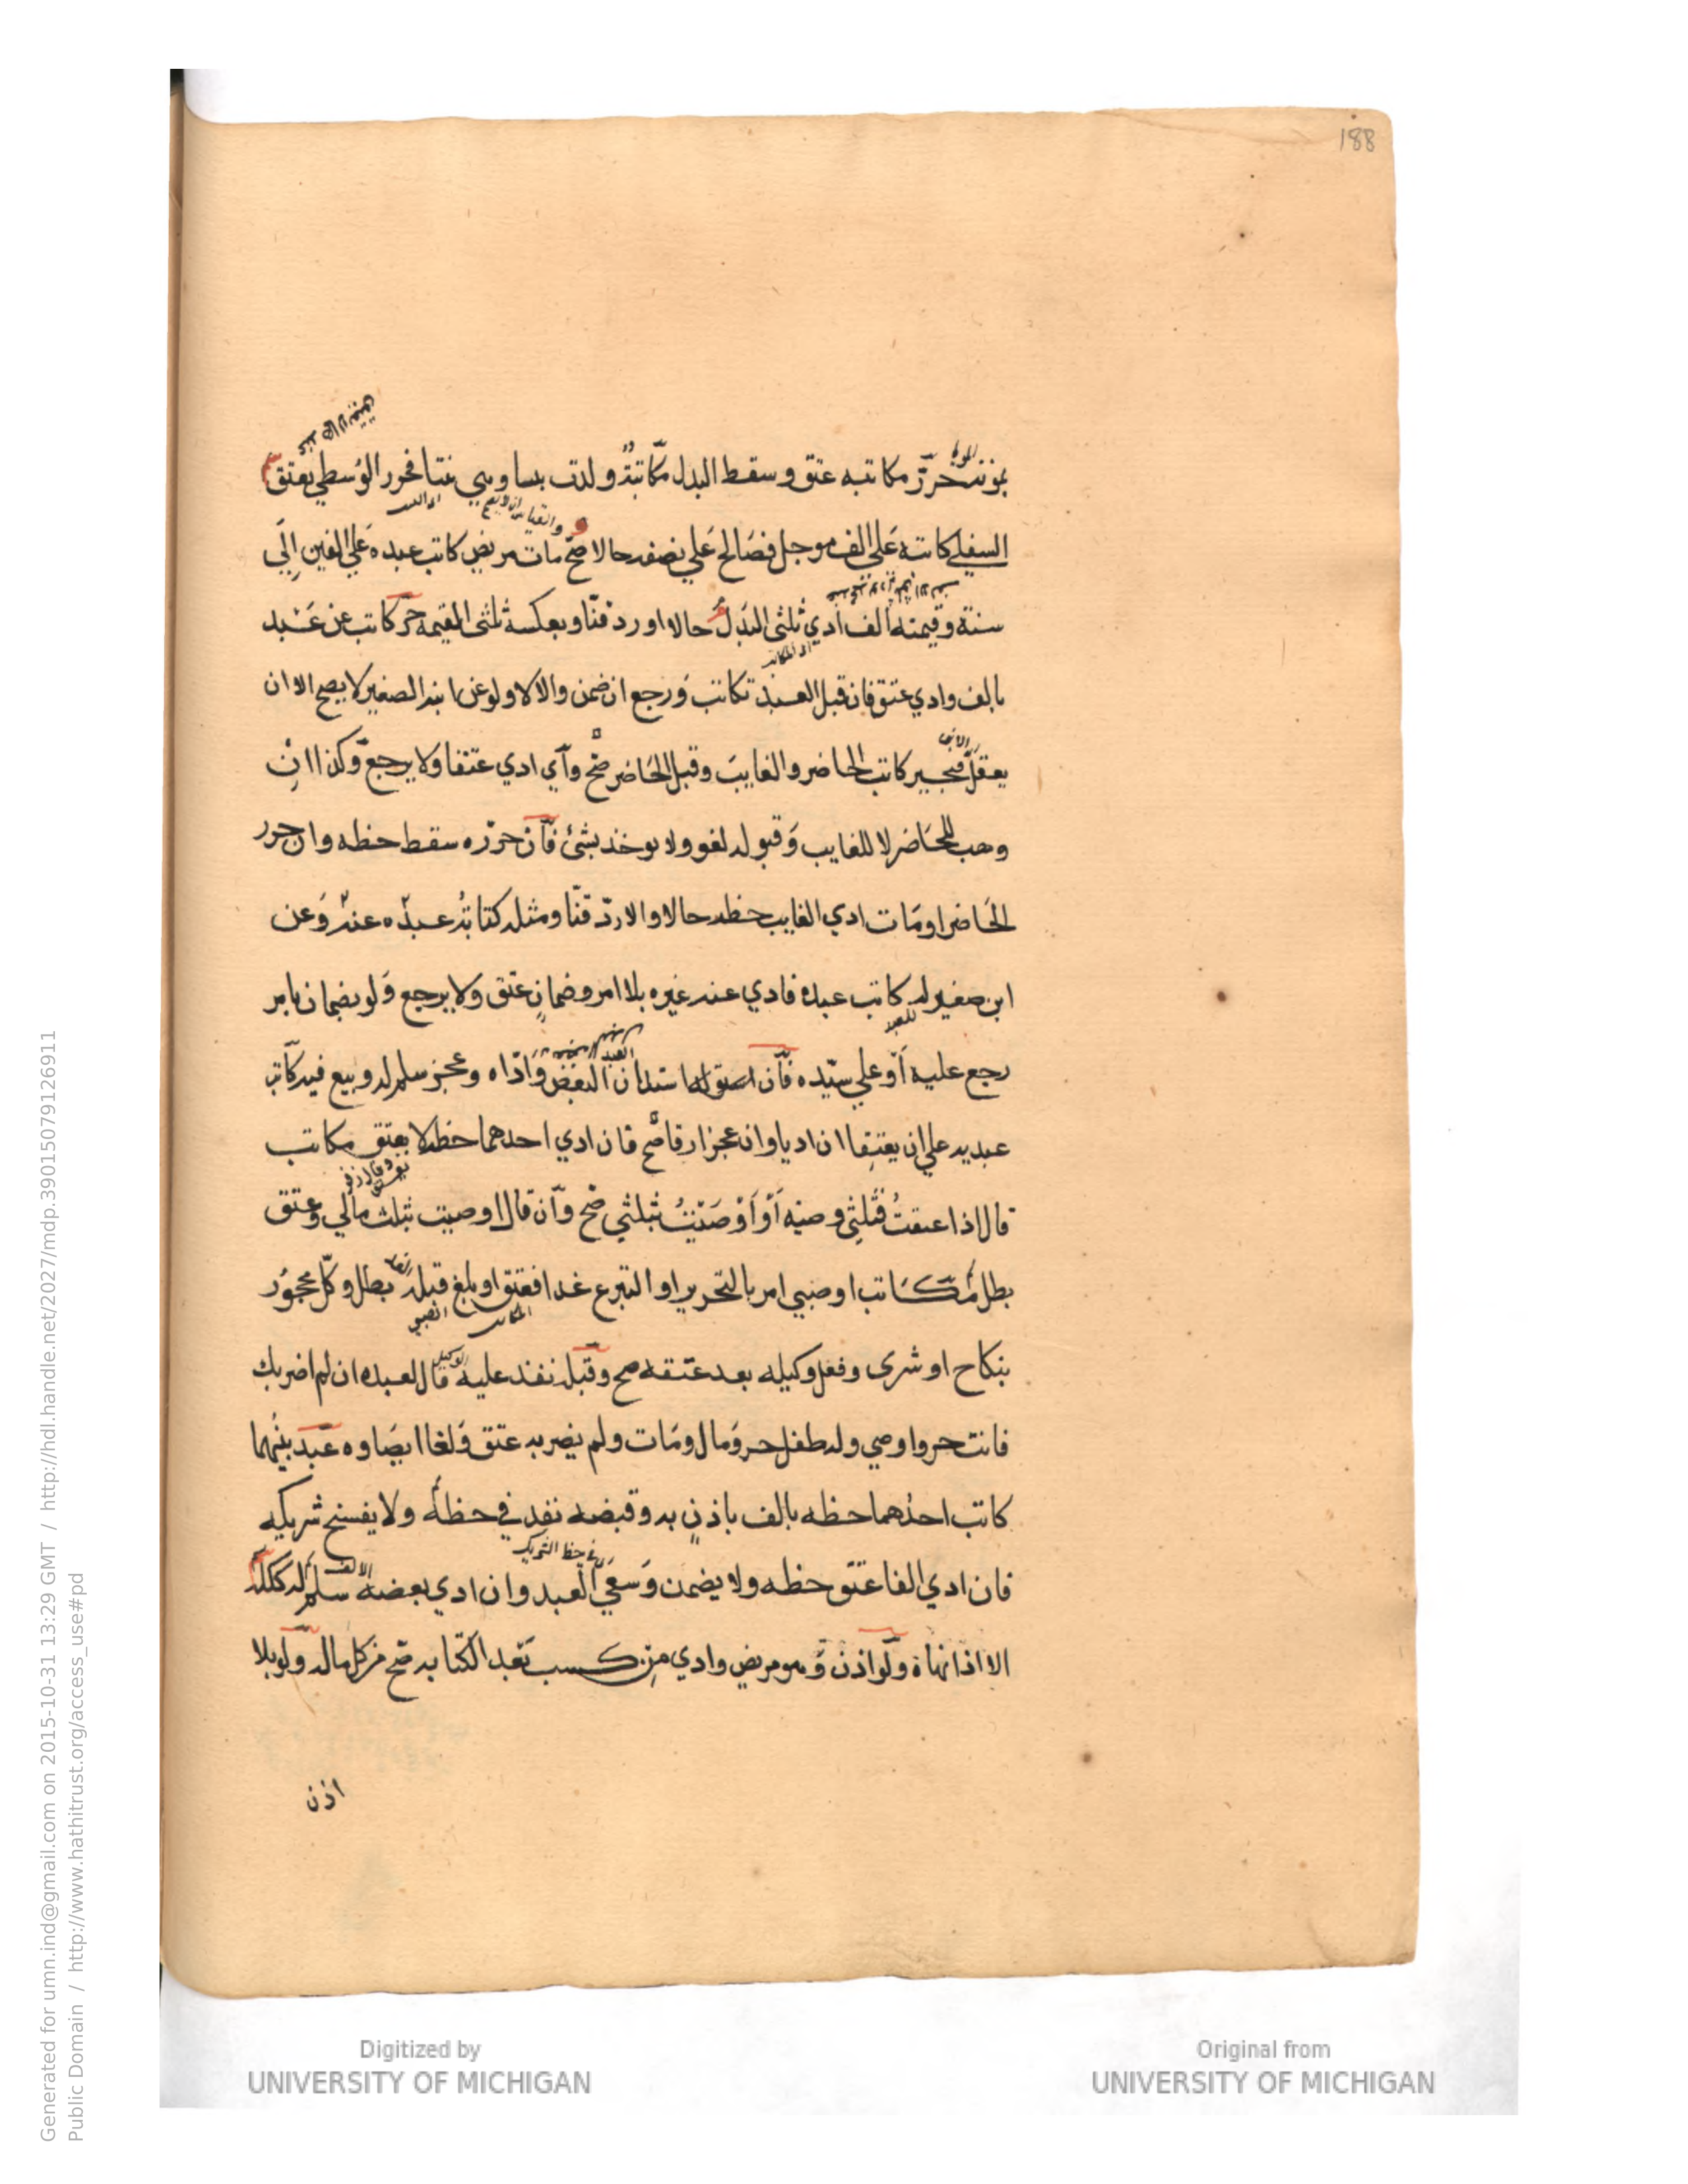 188
بموته حرر مكاتبه عتق وسقط البدل مكاتبة ولدت بنتا وهي بنتا فحرر الوسطي يعتق
السفلي كاتبه علي الف موجل فصالح علي نصفه حالا صح مات مريض كاتب عبده علي الفين الي
سنة وقيمته الف ادي ثلثي البدل حالا او رد قنا وبعكسه ثلثي القيمة حر كاتب عن عبد
بالف وادي عتق فان قبل العبد تكاتب ورجع ان ضمن والا لا ولو عن ابنه الصغير لا يصح الا ان
يعقل فيجيز كاتب الحاضر والغايب وقبل الحاضر صح واي ادي عتقا ولا يرجع وكذا ان
وهب للحاضر لا للغايب وقبوله لغو ولا يوخذ بشئ فان حرره سقط حظه وان حرر
الحاضر او مات ادي الغايب حظه حالا والا رد قنا ومثله كتابة عبده عنه وعن
ابن صغير له كاتب عبده فادي عنه غيره بلا امر وضمان عتق ولا يرجع ولو بضمان بامر
رجع عليه او علي سيده فان استدان البعض واداه وعجز سلم له وبيع فيه كاتب
عبديه علي ان يعتقا ان اديا وان عجزا رقا صح فان ادي احدهما حظه لا يعتق مكاتب
قال اذا عتقت فثلثي وصية او اوصيت بثلثي صح وان قال اوصيت بثلث مالي وعتق
بطل مكاتب او صبي امر بالتحرير او التبرع غدا فعتق او بلغ قبله بطل وكل محجور
بنكاح او شرى وفعل وكيله بعد عتقه صح وقبله نفذ عليه قال لعبده ان لم اضربك
فانت حر واوصي وله طفل حر ومال ومات ولم يضربه عتق ولغا ايصاوه عبد بينهما
كاتب احدهما حظه بالف باذن به وقبضه نفذ في حظه ولا يفسخ شريكه
فان ادي الفا عتق حظه ولا يضمن وسعي العبد وان ادي بعضه سلم له كله
الا اذا نهاه ولو اذن وهو مريض وادي من كسب بعد الكتابه صح من كل ماله ولو بلا
اذن
Generated for umn.ind@gmail.com on 2015-10-31 13:29 GMT / http://hdl.handle.net/2027/mdp.39015079126911
Public Domain / http://www.hathitrust.org/access_use#pd
Digitized by
UNIVERSITY OF MICHIGAN
Original from
UNIVERSITY OF MICHIGAN